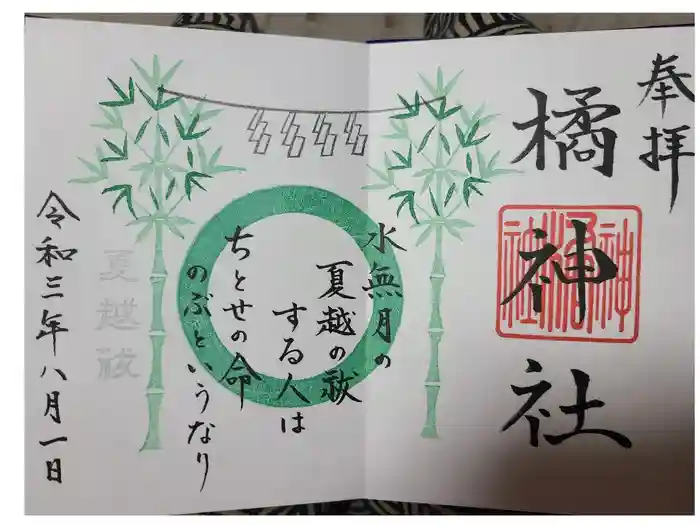 奉拝
橘神社
水無月の
夏越の祓
する人は
ちとせの命
のぶというなり
夏越祓
令和三年八月一日